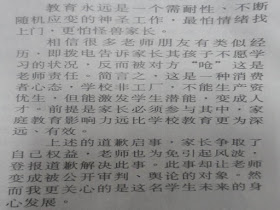 教育永远是一个需耐性、不断
随机应变的神圣工作，最怕情绪找
上门，更怕怪兽家长。
相信很多老师朋友有类似经
历，即拨电告诉家长其孩子不愿学
习的状况，反而被对方“呛”这是
老师责任。简言之，这是一种消费
者心态，学校非工厂，不能生产资
优生，但能激发学生潜能，变成人
才。前提是家长必须参与其中，家
庭教育影响力远比学校教育更为深
远、有效。
上述的道歉启事，家长争取了
自己权益，老师也为免引起风波，
登报道歉解决此事。此事却让老师
变成被公开审判、舆论的对象。然
而我更关心的是这名学生未来的身
心发展。